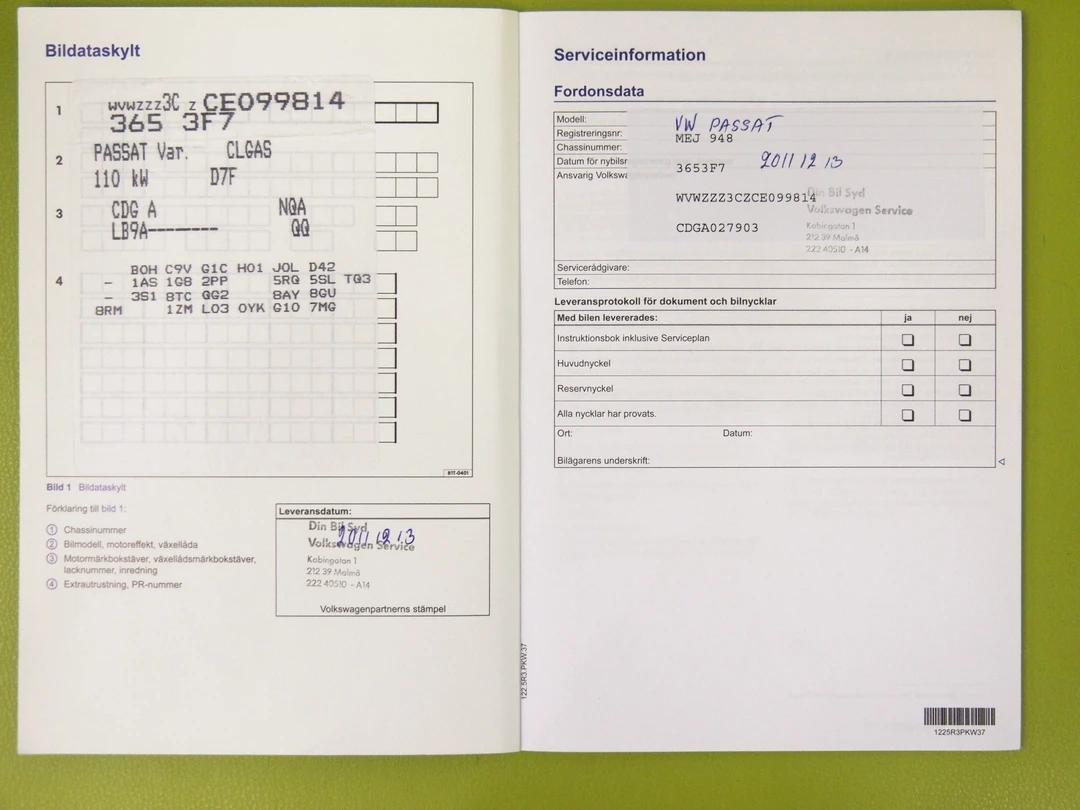 Bildataskylt
1
WVWZZZ3C Z CE099814
365 3F7
2
PASSAT Var. CLGAS
110 kW D7F
3
CDG A NQA
LB9A-------- QQ
4
BOH C9V G1C HO1 JOL D42
– 1AS 1G8 2PP 5RQ 5SL TQ3
– 3S1 8TC QG2 8AY 8GU
8RM 1ZM LO3 OYK G1O 7MG
B1T-0401
Bild 1 Bildataskylt
Förklaring till bild 1:
1 Chassinummer
2 Bilmodell, motoreffekt, växellåda
3 Motormärkbokstäver, växellådsmärkbokstäver,
lacknummer, inredning
4 Extrautrustning, PR-nummer
Leveransdatum:
Din Bil Syd
2011 12 13
Volkswagen Service
Kabingatan 1
212 39 Malmö
222 40510 - A14
Volkswagenpartnerns stämpel
Serviceinformation
Fordonsdata
Modell: VW PASSAT
Registreringsnr: MEJ 948
Chassinummer:
Datum för nybilsr 2011 12 13
3653F7
Ansvarig Volkswa
WVWZZZ3CZCE099814
Din Bil Syd
Volkswagen Service
CDGA027903
Kabingatan 1
212 39 Malmö
222 40510 - A14
Servicerådgivare:
Telefon:
Leveransprotokoll för dokument och bilnycklar
Med bilen levererades: ja nej
Instruktionsbok inklusive Serviceplan
Huvudnyckel
Reservnyckel
Alla nycklar har provats.
Ort: Datum:
Bilägarens underskrift:
122.5R3.PKW.37
1225R3PKW37